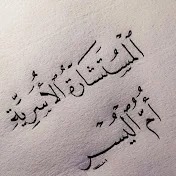 المُسْتَشَارَةُ الأُسَرِيَّةِ
أُمُّ اليُسْرِ